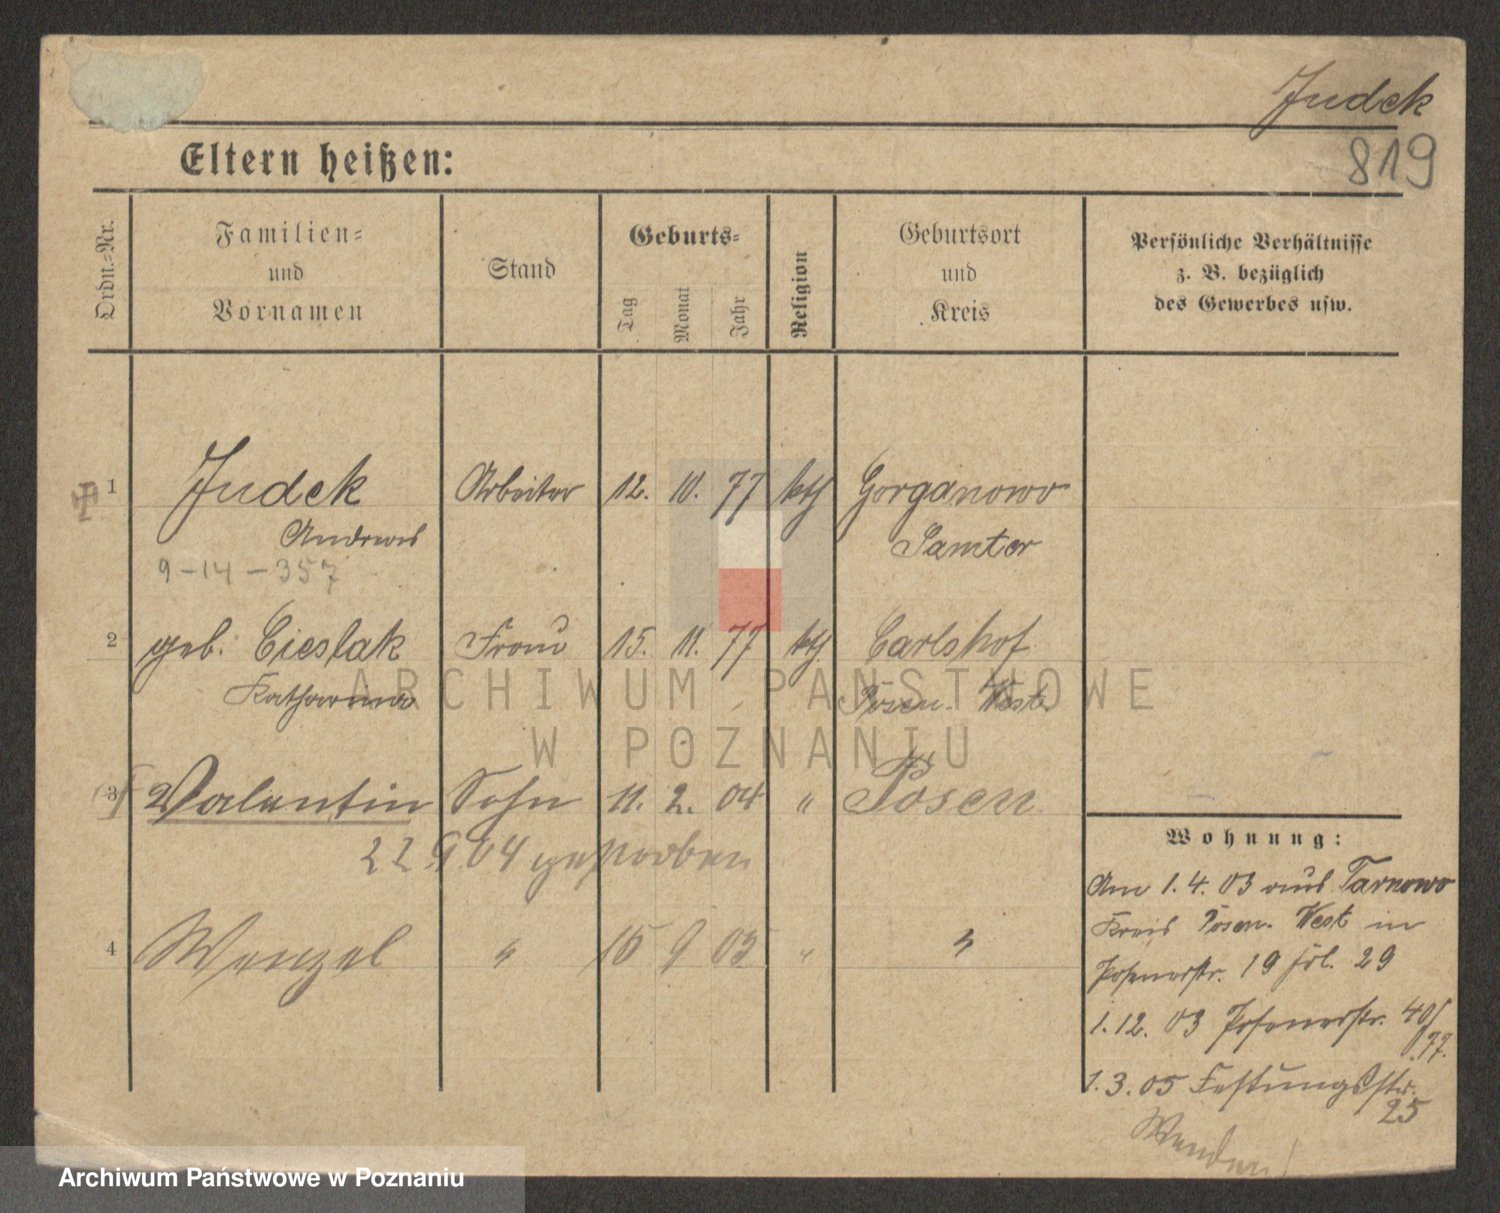 Judek
819
Eltern heißen:
Ordn.-Nr.
Familien-
und
Vornamen
Stand
Geburts-
Tag
Monat
Jahr
Religion
Geburtsort
und
Kreis
Persönliche Verhältnisse
z. B. bezüglich
des Gewerbes usw.
1 Judek Arbeiter 12. 10. 77 kth Gorganowo
Andreas Samter
9-14-357
2 geb. Cieslak Frau 15. 11. 77 kth. Carlshof
Katharina Posen. West.
3 Valentin Sohn 11. 2. 04 " Posen
22 9 04 gestorben
4 Wenzel " 15 9 05 " "
Wohnung:
Am 1.4.03 aus Tarnowo
Kreis Posen. West in
Posenerstr. 19 frl. 29
1.12.03 Posenerstr. 40/
77.
1.3.05 Festungsstr.
25
Wenden!
ARCHIWUM PAŃSTWOWE
W POZNANIU
Archiwum Państwowe w Poznaniu